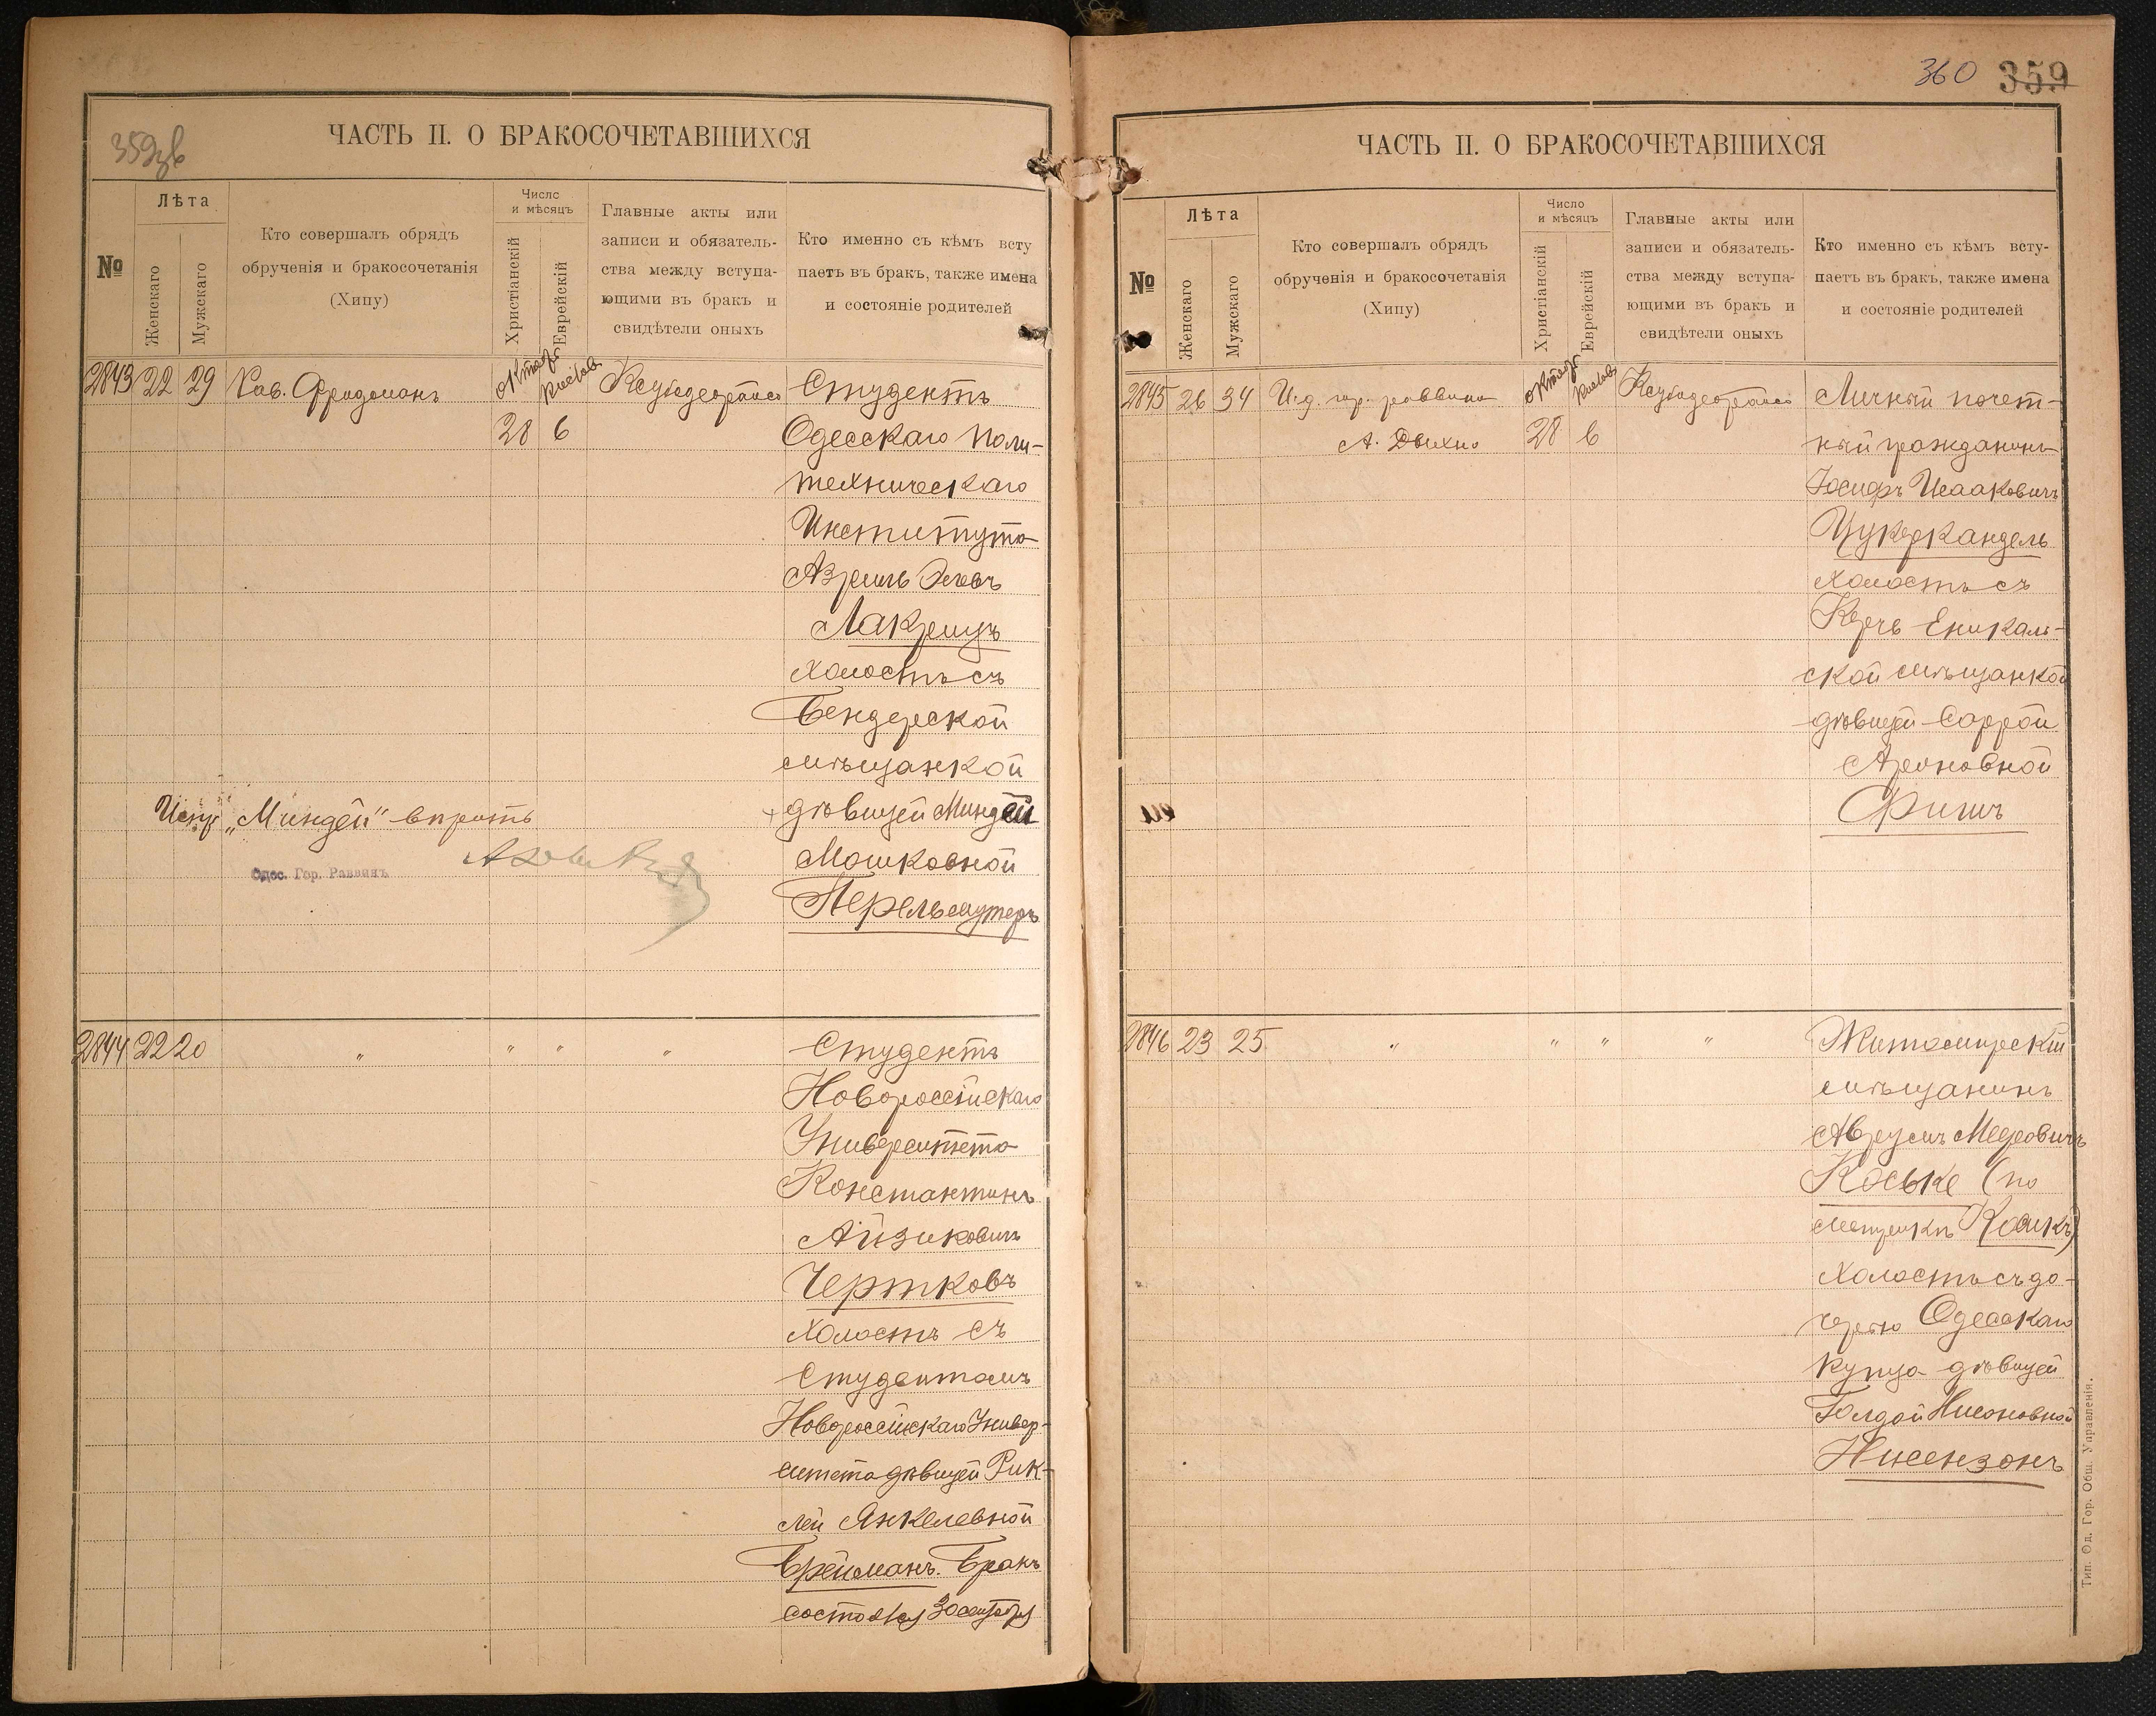 359зв
ЧАСТЬ II. О БРАКОСОЧЕТАВШИХСЯ
№
Лѣта
Женскаго
Мужскаго
Кто совершалъ обрядъ
обрученія и бракосочетанія
(Хипу)
Число
и мѣсяцъ
Христіанскій
Еврейскій
Главные акты или
записи и обязатель-
ства между вступа-
ющими въ бракъ и
свидѣтели оныхъ
Кто именно съ кѣмъ всту
паетъ въ бракъ, также имена
и состояніе родителей
2843 22 29 Рав. Фридманъ Октяб Кислев Студентъ
28 6 Одесскаго Поли-
техническаго
Института
Азриль
Лакрицъ
холостъ съ
Бендерской
мѣщанкой
дѣвицей Миндей
Испр „Миндей" вѣрить
Мошковной
Одес. Гор. Раввинъ
Перельмутеръ
2844 22 20 " " " " Студентъ
Новороссійскаго
Университета
Константинъ
Айзиковичъ
Чертковъ
холостъ съ
Студенткой
Новороссійскаго Универ-
ситета дѣвицей Рик-
лей Янкелевной
Брейманъ. Бракъ
состоялся 30 октября
360 359
ЧАСТЬ II. О БРАКОСОЧЕТАВШИХСЯ
№
Лѣта
Женскаго
Мужскаго
Кто совершалъ обрядъ
обрученія и бракосочетанія
(Хипу)
Число
и мѣсяцъ
Христіанскій
Еврейскій
Главные акты или
записи и обязатель-
ства между вступа-
ющими въ бракъ и
свидѣтели оныхъ
Кто именно съ кѣмъ всту-
паетъ въ бракъ, также имена
и состояніе родителей
2845 26 34 И.д. гор. раввина Октяб Кислев Личный почет-
А. Дыхно 28 6 ный гражданинъ
Іосифъ Исааковичъ
Цукеркандель
холостъ съ
Керчь Еникаль-
ской мѣщанкой
дѣвицей Саррой
Ароновной
Фишъ
2846 23 25 " " " " Житомирскій
мѣщанинъ
Аврумъ Мееровичъ
Коське (по
метрикѣ Косикъ)
холостъ съ до-
черью Одесскаго
купца дѣвицей
Голдой Нисоновной
Нисензонъ
Тип. Од. Гор. Общ. Управленія.